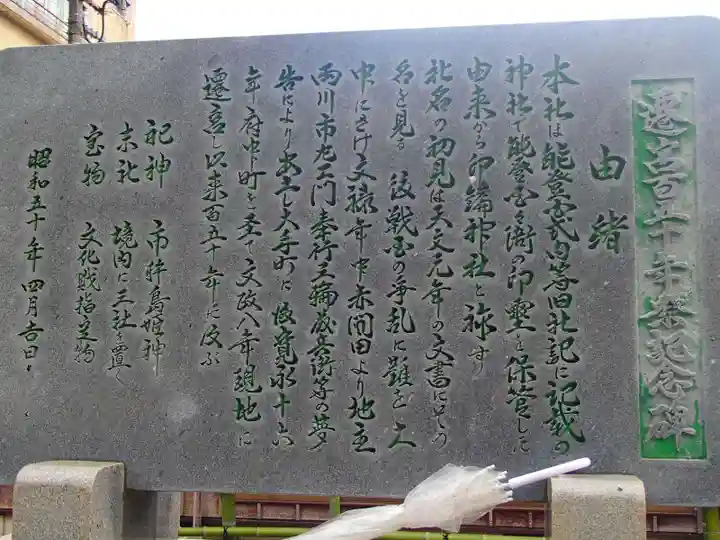 遷宮百五十年祭記念碑
由緒
本社は能登国式内等旧社記に記載の
神社で能登国衙の印鑰を保管した
由来から印鑰神社と称す
社名の初見は天文元年の文書にその
名を見る 後戦国の争乱に難を入
中にさけ文禄年中赤間田より地主
両川市左エ門 奉行三輪藏兵衛等の夢
告により安土し大手町に 後寛永十六
年府中町を至て文政八年現地に
遷宮し以来百五十年に及ぶ
祀神 市杵島姫神
末社 境内に三社を置く
宝物 文化財指定物
昭和五十年四月吉日